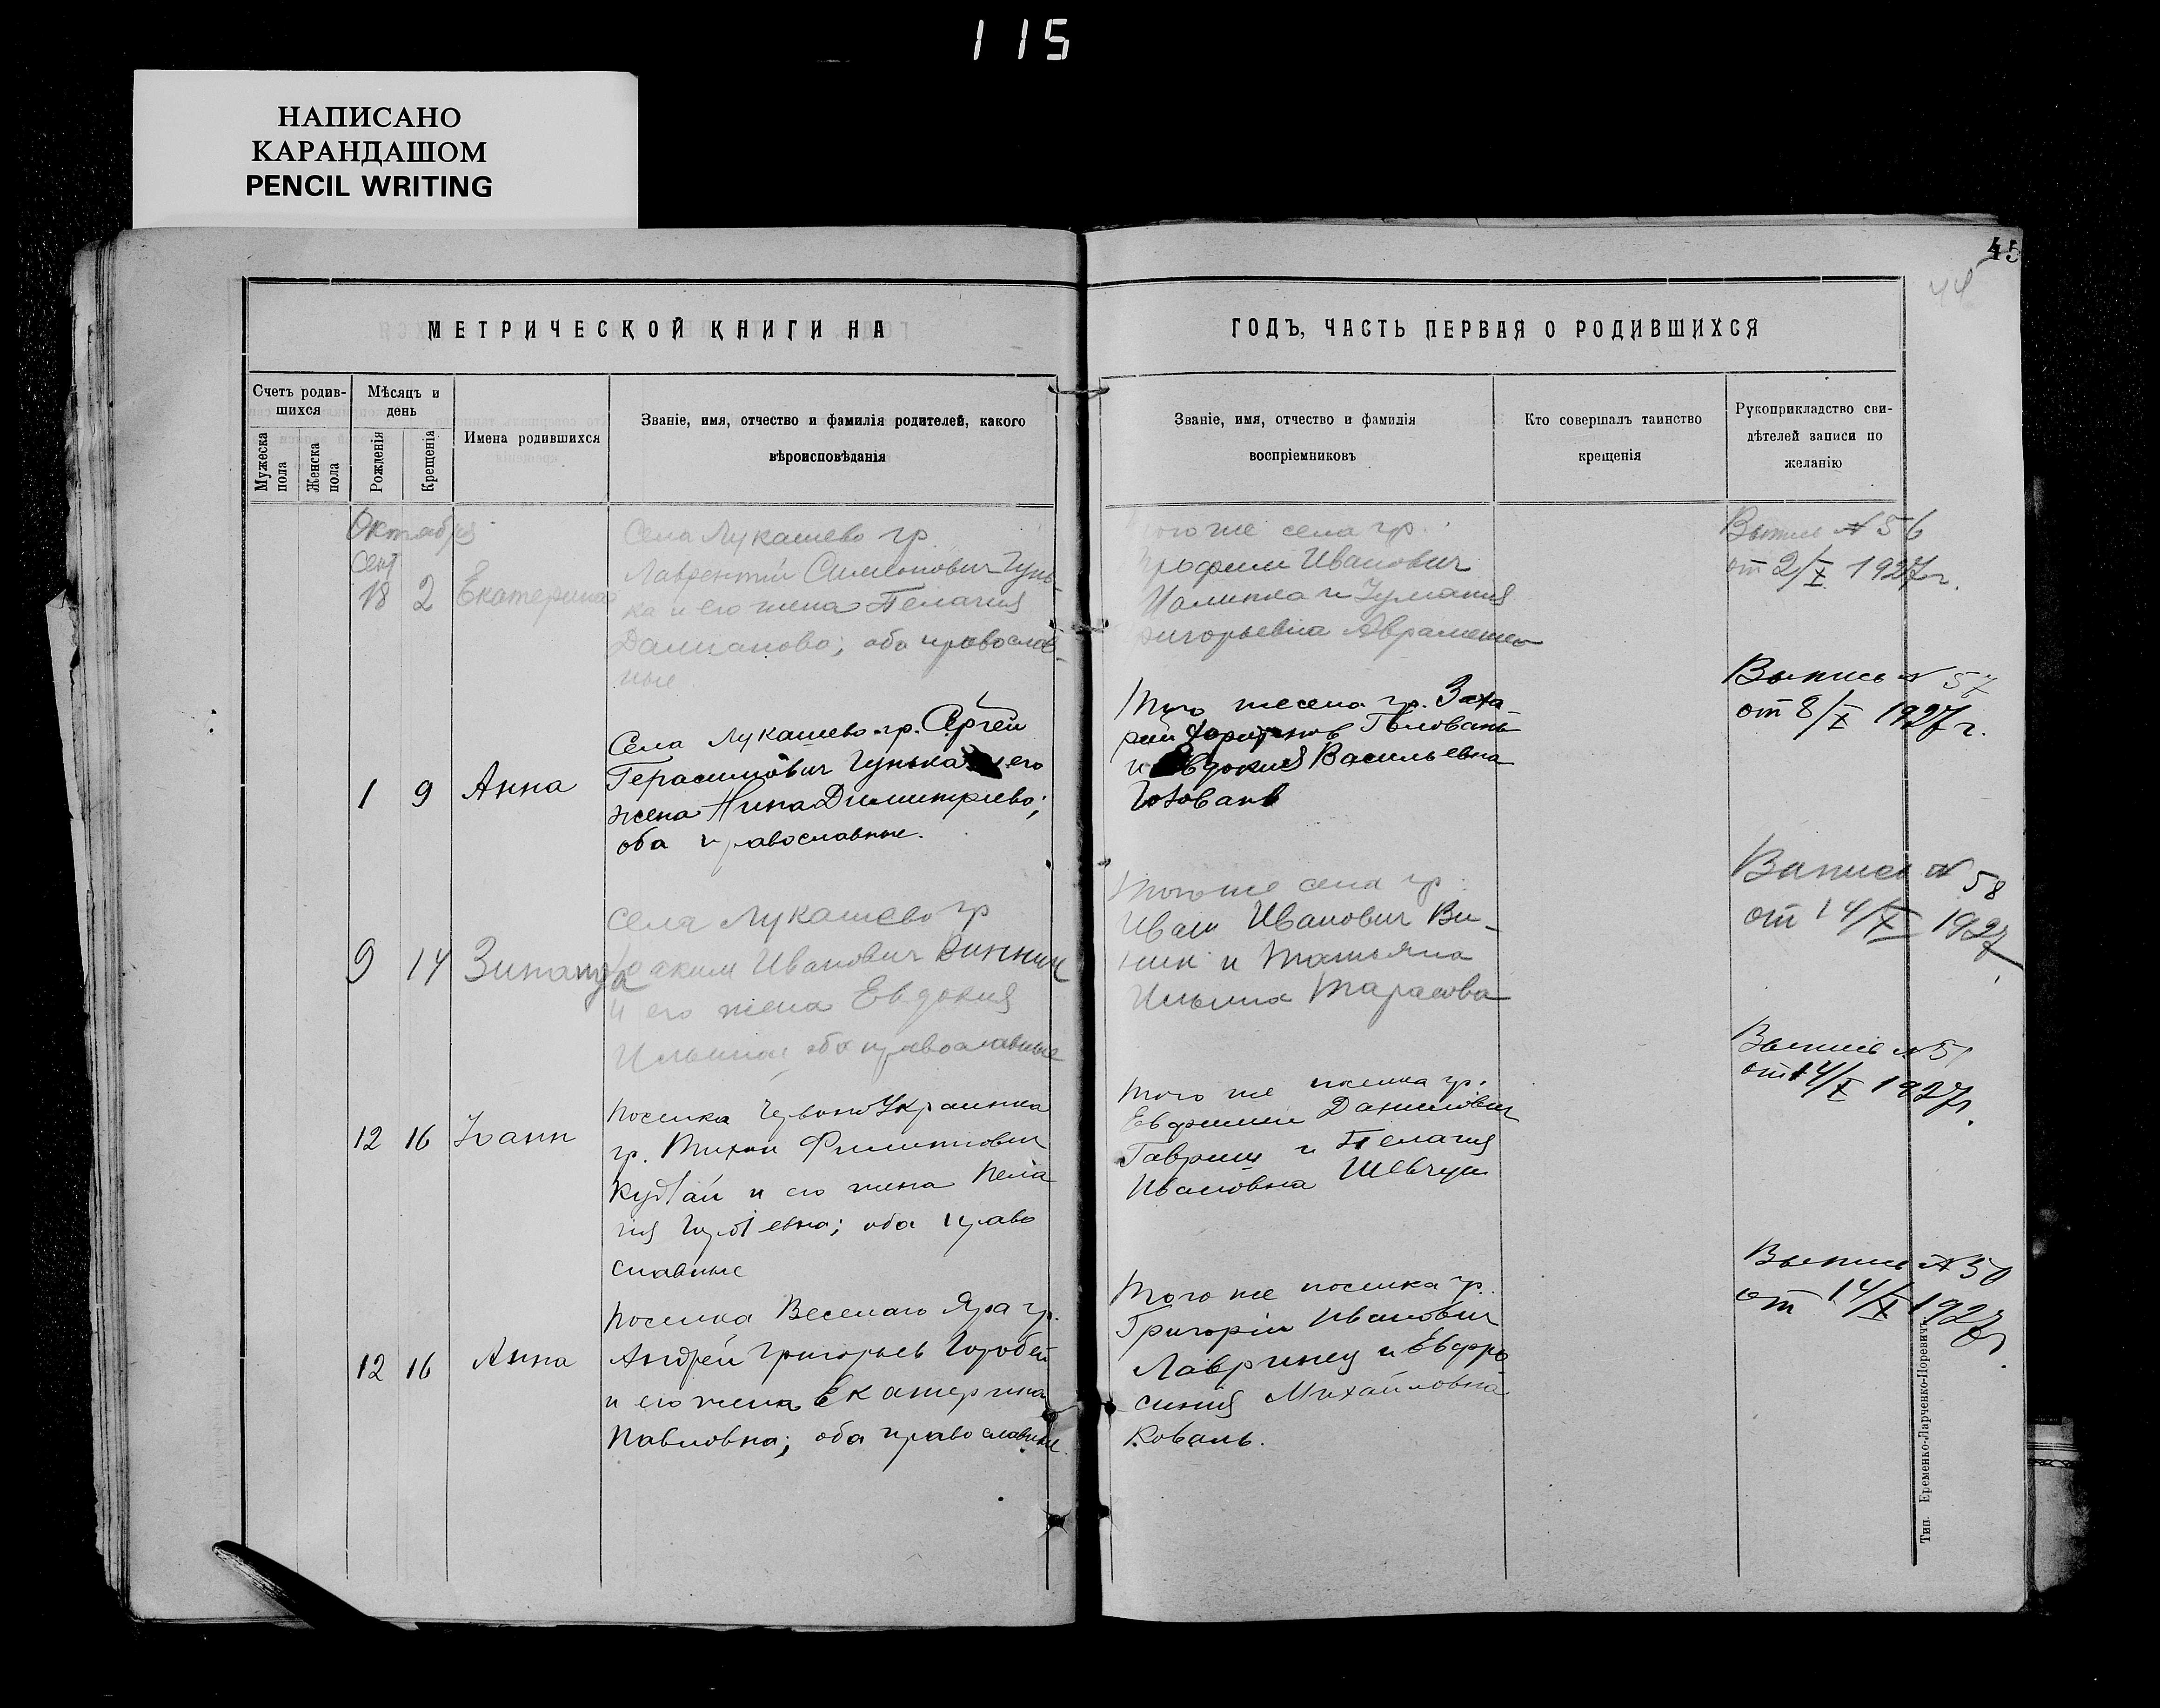 115
НАПИСАНО
КАРАНДАШОМ
PENCIL WRITING
45
44
МЕТРИЧЕСКОЙ КНИГИ НА
ГОДЪ, ЧАСТЬ ПЕРВАЯ О РОДИВШИХСЯ
Счетъ родив-
шихся
Мужеска
пола
Женска
пола
Мѣсяцъ и
день
Рожденія
Крещенія
Имена родившихся
Званіе, имя, отчество и фамилія родителей, какого
вѣроисповѣданія
Званіе, имя, отчество и фамилія
воспріемниковъ
Кто совершалъ таинство
крещенія
Рукоприкладство сви-
дѣтелей записи по
желанію
Октября
Сент
18 2 Екатерина
Села Лукашево гр.
Лаврентій Симеонович Гунь-
ка и его жена Пелагия
Дамианова; оба православ-
ные
того же села гр.
Иванович
и
Григорьевна Авраменко
Выпись № 56
от 2/X 1927 г.
1 9 Анна
Села Лукашево гр. Сергей
Герасимович Гунька и его
жена Нина Димитриева;
оба православные.
Того же села гр. Заха-
рий Головань
и Евдокия Васильевна
Головань
Выпись № 57
от 8/X 1927 г.
9 14 Зинаида
Села Лукашево гр
Иоаким Иванович Винник
и его жена Евдокия
Ильина; оба православные
Того же села гр.
Иван Иванович Ви-
ник и Татьяна
Ильина Тарасова
Выпись № 58
от 14/X 1927
12 16 Иоанн
Поселка Червоно Украинка
гр. Тихон Филиппович
и его жена Пела
гия оба право
славные
Того же поселка гр.
Евфимий Данилович
Гавриш и Пелагия
Ивановна Шевчук
Выпись №
от 14/X 1927 г.
12 16 Анна
Поселка Веселаго Яра гр.
Андрей Григорьев Горобец
и его жена Екатерина
Павловна; оба православные.
Того же поселка гр.
Григорій Иванович
Лавринец и Евфро
синия Михайловна
Коваль.
Выпись №
от 14/X 1927 г.
Тип. Еременко-Ларченко-Норевичъ